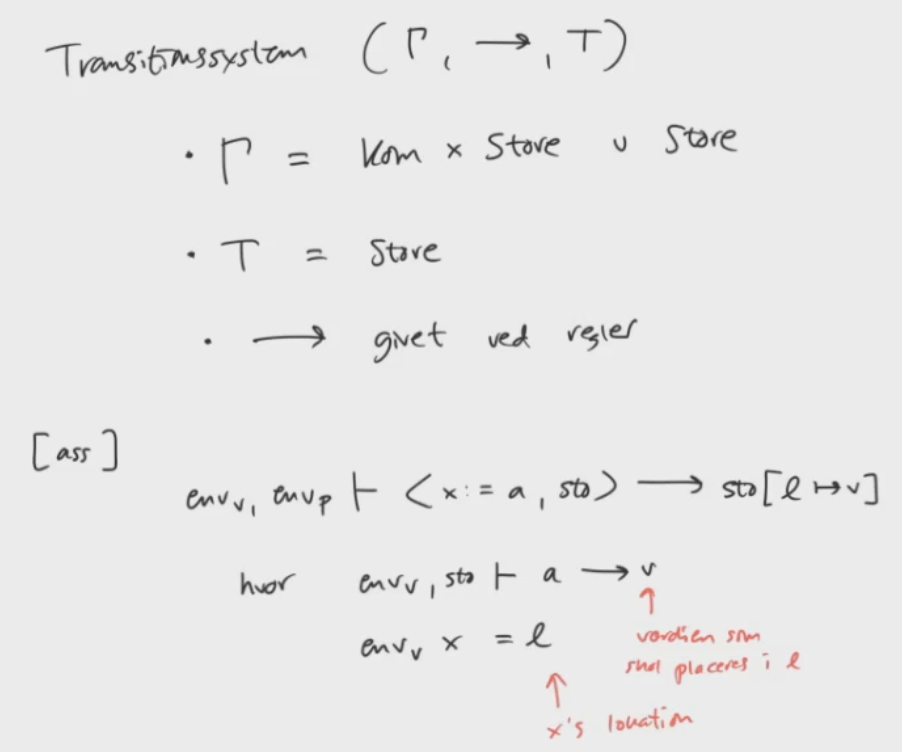 Transitionssystem (Γ, →, T)
· Γ = Kom × Store ∪ Store
· T = Store
· → givet ved regler
[ass]
env_v, env_p ⊢ <x := a, sto> → sto[l ↦ v]
hvor env_v, sto ⊢ a → v
env_v x = l
↑
værdien som
skal placeres i l
↑
x's lokation